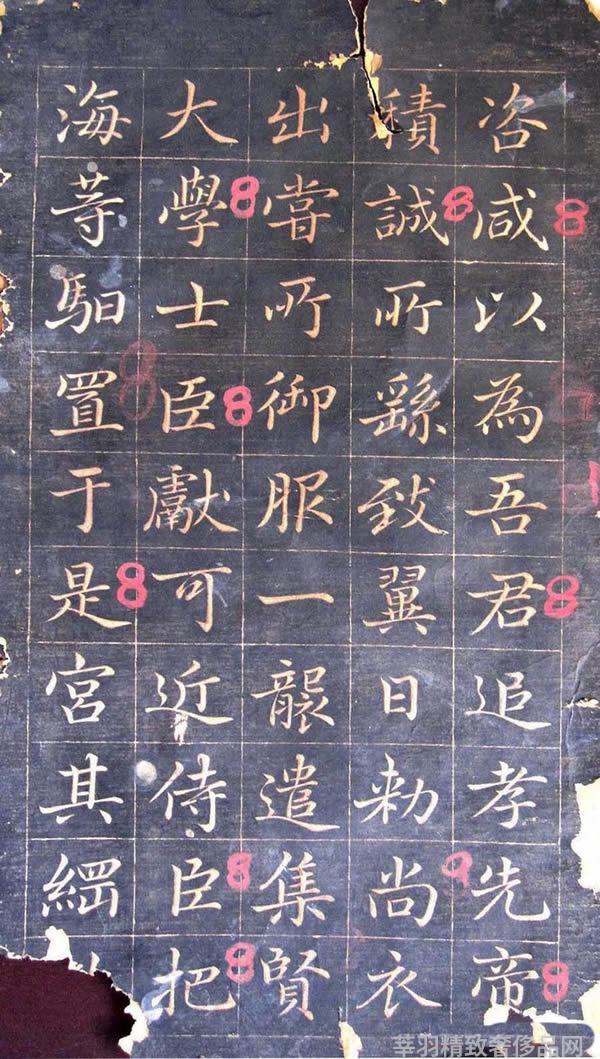 咨咸以為吾君追孝先帝
積誠所繇致翼日勅尚衣
出嘗所御服一襲遣集賢
大學士臣獻可近侍臣把
海等馹置于是宮其綱
莘羽精致奢侈品网